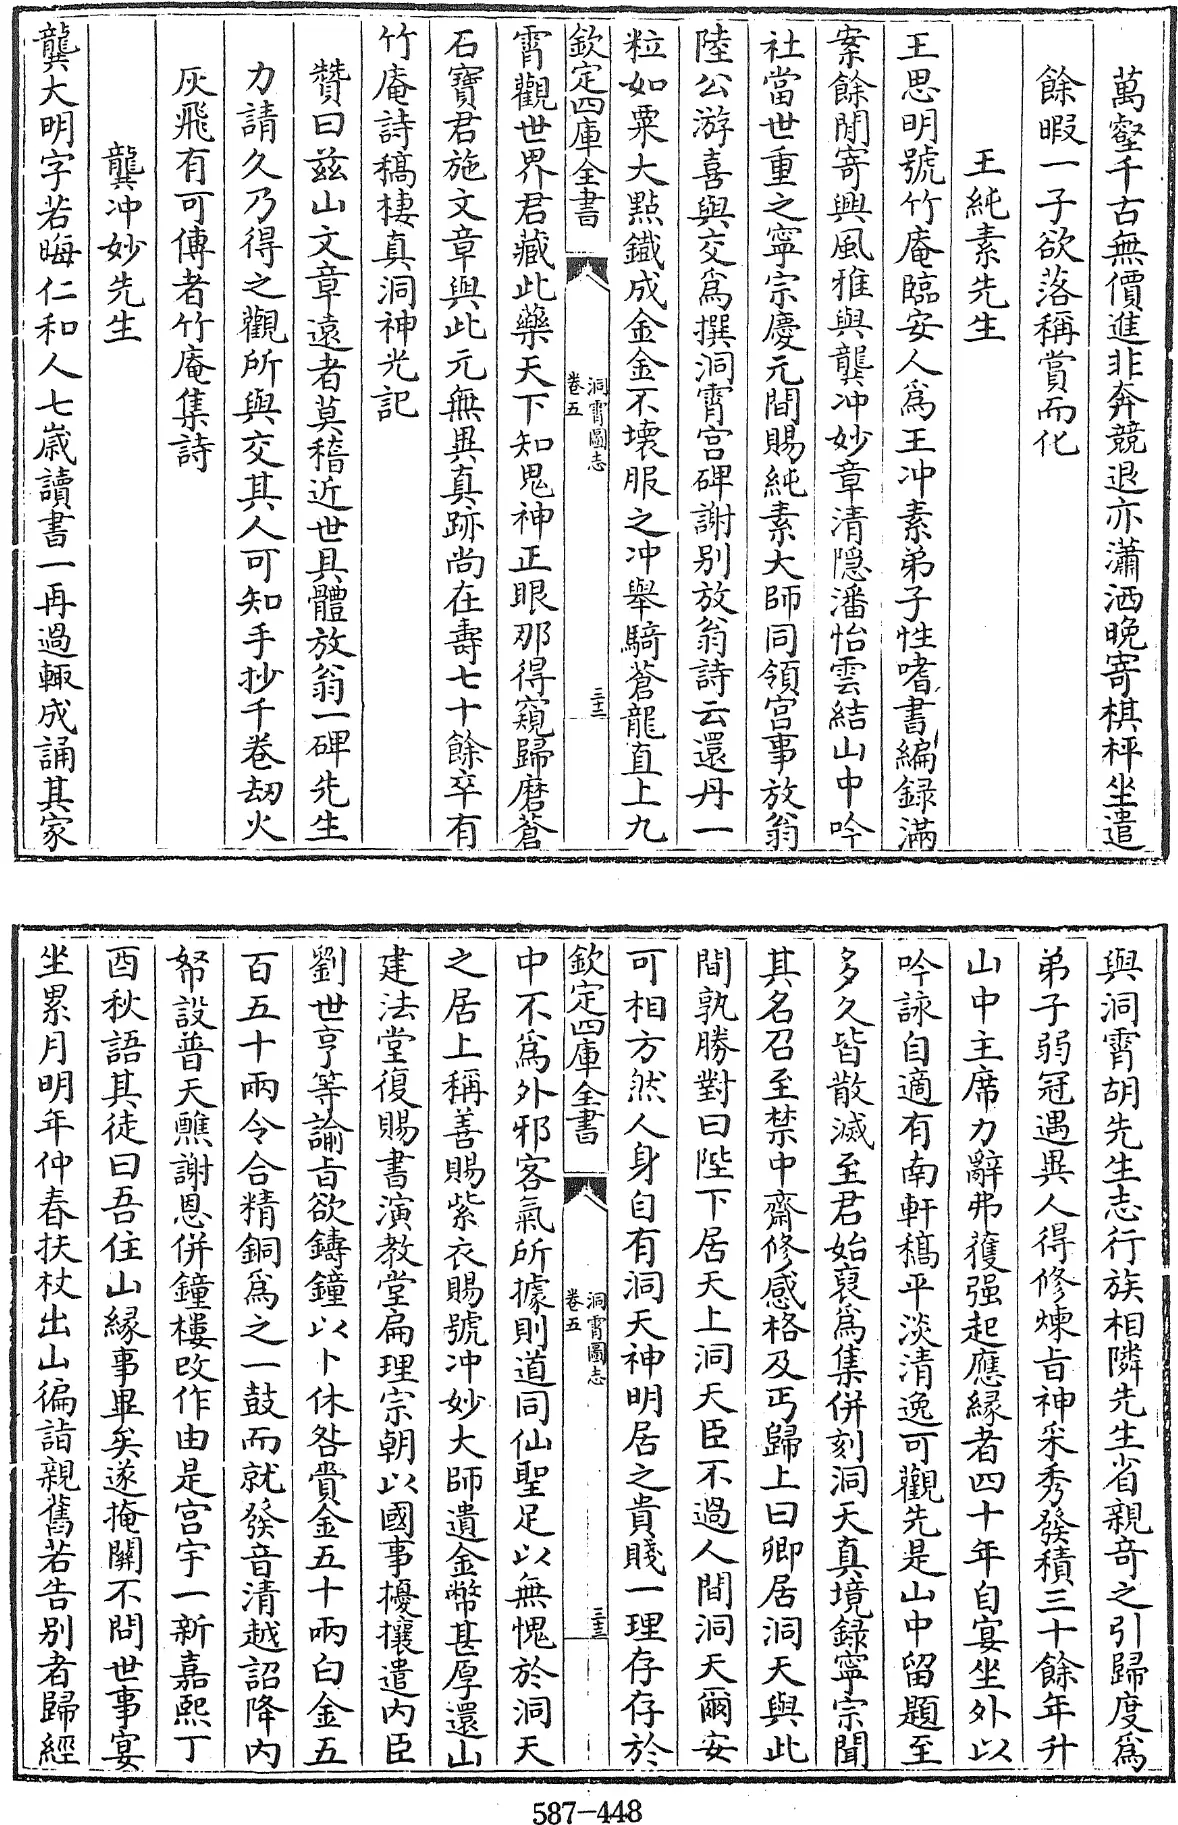 萬壑千古無價進非奔競退亦瀟洒晚寄棋枰坐遣
餘暇一子欲落稱賞而化
王純素先生
王思明號竹庵臨安人為王冲素弟子性嗜書編録滿
案餘閒寄興風雅與龔冲妙章清隠潘怡雲結山中吟
社當世重之寧宗慶元間賜純素大師同領宫事放翁
陸公游喜與交為撰洞霄宫碑謝别放翁詩云還丹一
粒如粟大點鐵成金金不壞服之冲舉騎蒼龍直上九
欽定四庫全書
洞霄圖志
卷五
三十二
霄觀世界君藏此藥天下知鬼神正眼那得窺歸磨蒼
石寶君施文章與此元無異真跡尚在壽七十餘卒有
竹庵詩稿棲真洞神光記
贊曰兹山文章遠者莫稽近世具體放翁一碑先生
力請久乃得之觀所與交其人可知手抄千卷刼火
灰飛有可傳者竹庵集詩
龔冲妙先生
龔大明字若晦仁和人七歲讀書一再過輙成誦其家
與洞霄胡先生志行族相隣先生省親奇之引歸度為
弟子弱冠遇異人得修煉旨神采秀發積三十餘年升
山中主席力辭弗獲强起應縁者四十年自宴坐外以
吟詠自適有南軒稿平淡清逸可觀先是山中留題至
多久皆散滅至君始裒為集併刻洞天真境録寧宗聞
其名召至禁中齋修感格及丐歸上曰卿居洞天與此
間孰勝對曰陛下居天上洞天臣不過人間洞天爾安
可相方然人身自有洞天神明居之貴賤一理存存於
欽定四庫全書
洞霄圖志
卷五
三十三
中不為外邪客氣所據則道同仙聖足以無愧於洞天
之居上稱善賜紫衣賜號冲妙大師遺金幣甚厚還山
建法堂復賜書演教堂扁理宗朝以國事擾攘遣内臣
劉世亨等諭旨欲鑄鐘以卜休咎賫金五十兩白金五
百五十兩令合精銅為之一鼓而就發音清越詔降内
帑設普天醮謝恩併鐘樓改作由是宫宇一新嘉熙丁
酉秋語其徒曰吾住山縁事畢矣遂掩關不問世事宴
坐累月明年仲春扶杖出山徧詣親舊若告别者歸經
587-448